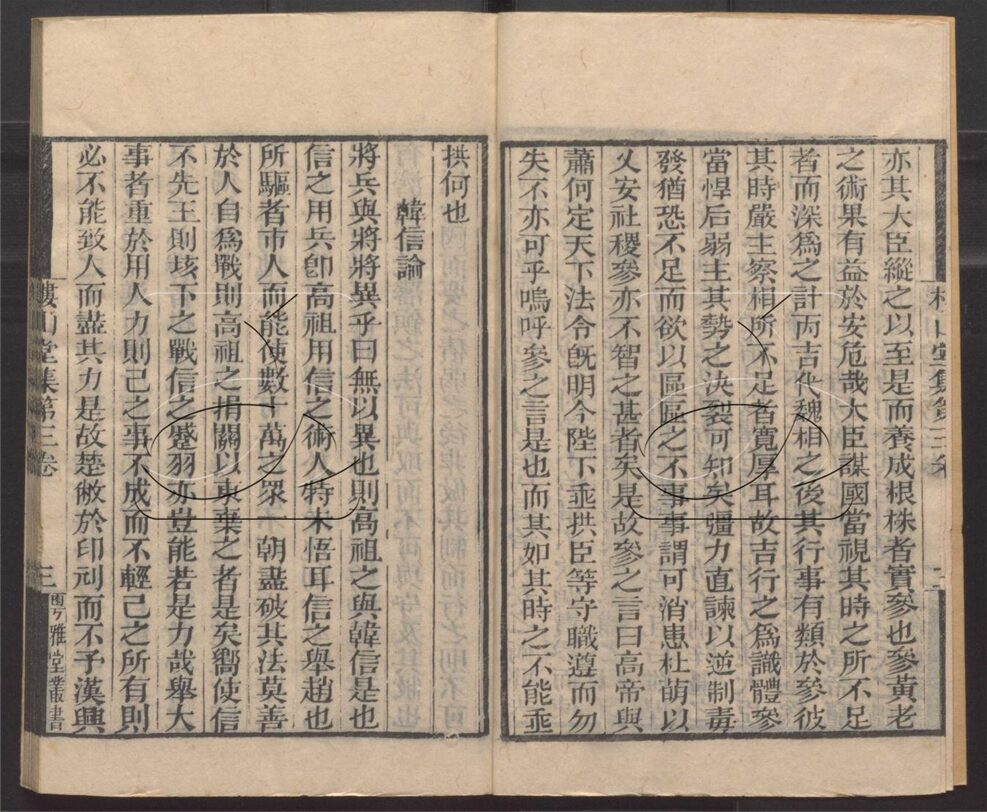 樓山堂集第三卷
二
亦其大臣縱之以至是而養成根株者實參也參黃老
之術果有益於安危哉大臣謀國當視其時之所不足
者而深為之計丙吉代魏相之後其行事有類於參彼
其時嚴主察相所不足者寬厚耳故吉行之爲識體參
當悍后弱主其勢之決裂可知矣彊力直諫以逆制毒
發猶恐不足而欲以區區之不事事謂可消患杜萌以
乂安社稷參亦不智之甚者矣是故參之言曰高帝與
蕭何定天下法令旣明今陛下垂拱臣等守職遵而勿
失不亦可乎嗚呼參之言是也而其如其時之不能垂
拱何也
韓信論
將兵與將將異乎曰無以異也則高祖之與韓信是也
信之用兵卽高祖用信之術人特未悟耳信之舉趙也
所驅者市人而能使數十萬之眾一朝盡破其法莫善
於人自爲戰則高祖之捐關以東棄之者是矣嚮使信
不先王則垓下之戰信之蹙羽亦豈能若是力哉舉大
事者重於用人力則己之事不成而不輕己之所有則
必不能致人而盡其力是故楚敝於印刓而不予漢興
樓山堂集第三卷
三
粵雅堂叢書